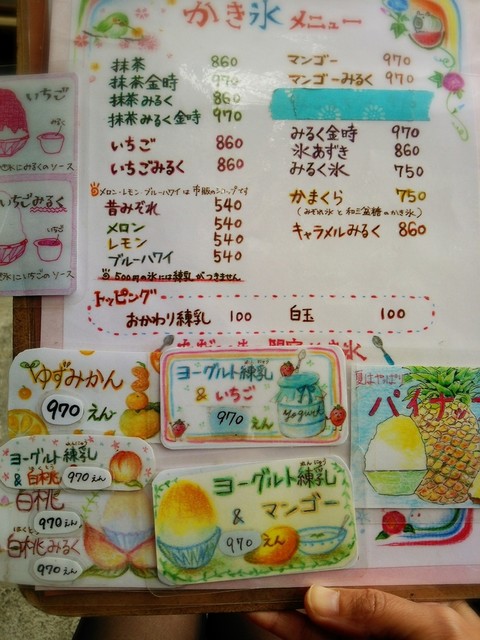 かき氷 メニュー
抹茶 860
抹茶金時 970
抹茶みるく 860
抹茶みるく金時 970
いちご 860
いちごみるく 860
メロン・レモン・ブルーハワイ は 市販のシロップです
昔みぞれ 540
メロン 540
レモン 540
ブルーハワイ 540
500円の氷には練乳がつきません
マンゴー 970
マンゴーみるく 970
みるく金時 970
氷あずき 860
みるく氷 750
かまくら 750
(みぞれ氷と和三盆糖のかき氷)
キャラメルみるく 860
トッピング
おかわり練乳 100 白玉 100
いちご
みるく
氷にみるくのソース
いちごみるく
いちご
氷にいちごのソース
ゆずみかん
970 えん
ヨーグルト練乳
& いちご
970 えん
Yogurt
夏はやっぱり
パイナッ
ヨーグルト練乳
& 白桃 970えん
白桃
970えん
白桃みるく
970えん
ヨーグルト練乳
& マンゴー
970 えん